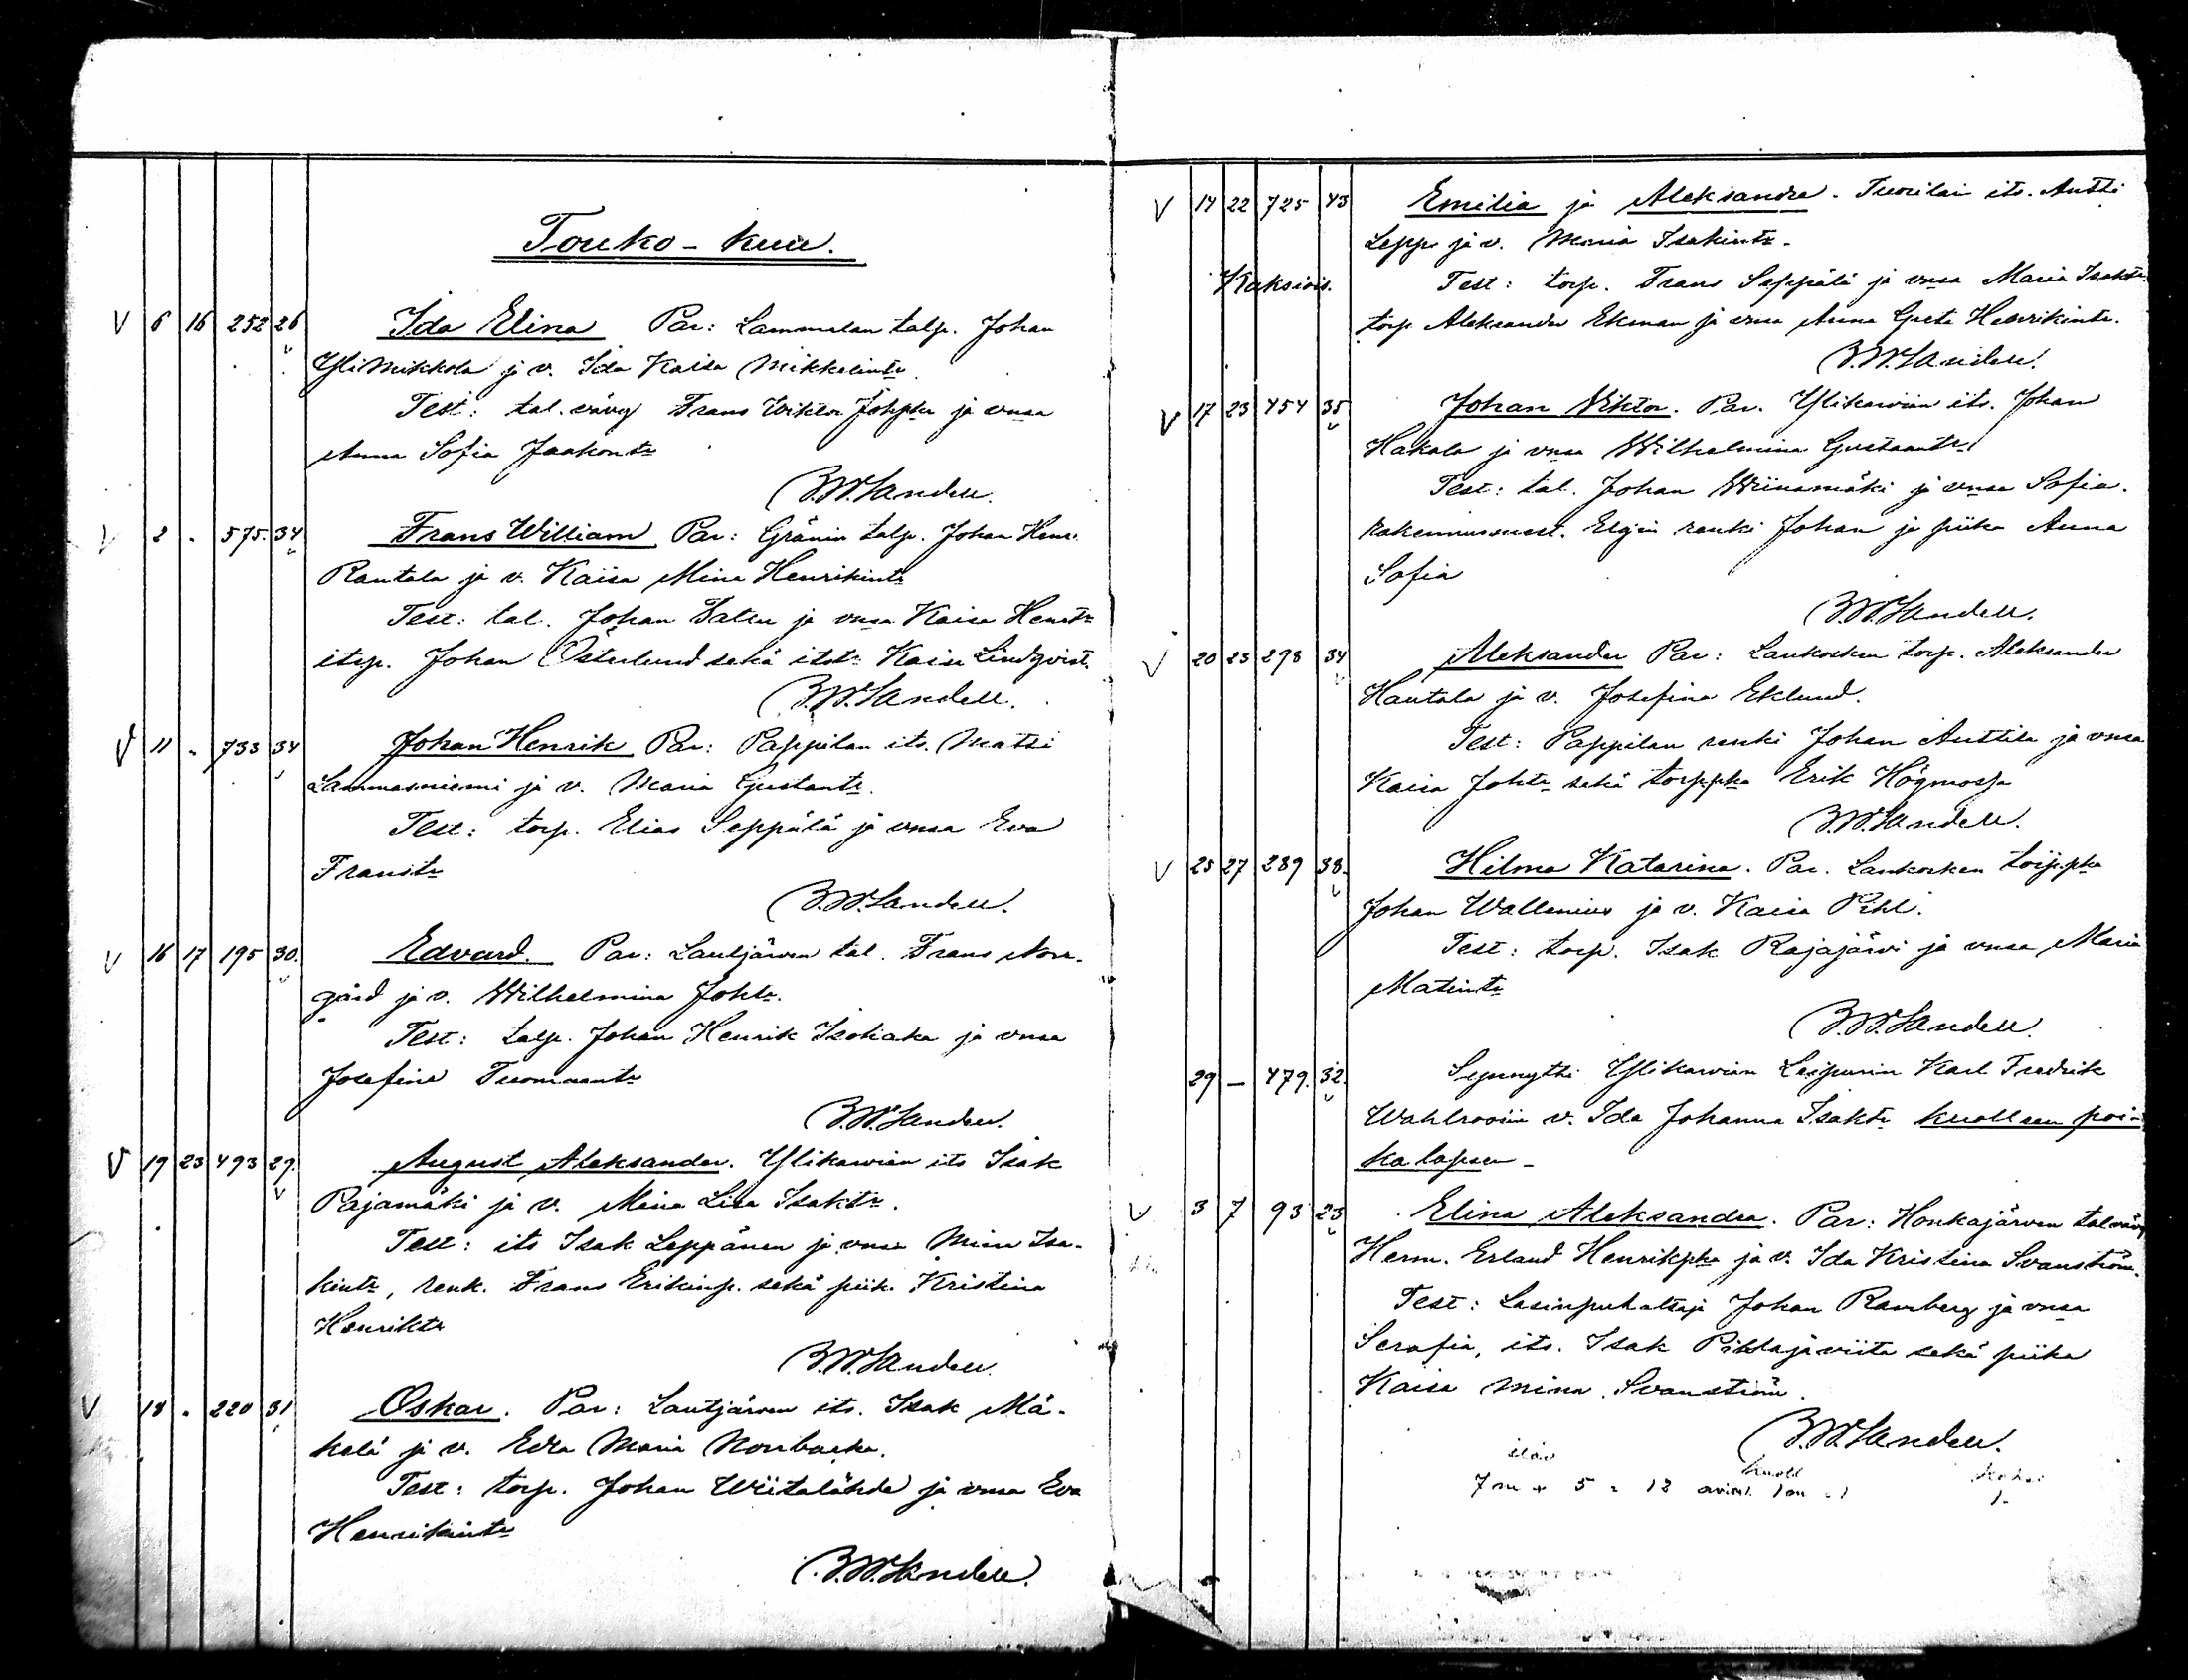 Touko-kuu.
V 6 16 252 26 Ida Elina Par: Lammelan talp. Johan
Ylimikkola ja v. Ida Kaisa Mikkelintr
Test: tal. vävy Frans Wiktor Johpka ja vmsa
Anna Sofia Jaakontr
F.W.Sandell.
V 2 . 575. 34 Frans William Par: Gränin talp. Johan Henr.
Rantala ja v. Kaisa Mina Henrikintr
Test: tal. Johan Salin ja vmsa Kaisa Henrtr
itsp. Johan Österlund sekä itstr Kaisa Lindqvist.
F.W.Sandell.
V 11 . 733 34 Johan Henrik Par: Pappilan its. Matti
Lammasniemi ja v. Maria Gustantr.
Test: torp. Elias Seppälä ja vmsa Eva
Franstr
F.W.Sandell.
V 16 17 195 30. Edvard. Par: Lautjärven tal. Frans Norr-
gård ja v. Wilhelmina Johtr.
Test: talp. Johan Henrik Isokaka ja vmsa
Josefina Tuomaantr
F.W.Sandell.
V 19 23 493 29. August Aleksander. Ylikarvian its Isak
Rajamäki ja v. Maria Lisa Isaktr.
Test: its Isak Leppänen ja vmsa Mina Isa-
kintr, renk. Frans Erikinp. sekä piik. Kristina
Henriktr
F.W.Sandell.
V 18 . 220 31 Oskar. Par: Lautjärven its. Isak Mä-
kelä ja v. Edla Maria Norrbacka.
Test: torp. Johan Wiitalähde ja vmsa Eva
Henrikintr
F.W.Sandell.
V 14 22 725 43 Emilia ja Aleksandra. Tuorilan its. Antti
Leppi ja v. Maria Isakintr.
Kaksois. Test: torp. Frans Seppälä ja vmsa Maria Isaktr
torp Aleksander Ekman ja vmsa Anna Greta Henrikintr.
F.W.Sandell.
V 17 23 454 35 Johan Viktor. Par. Ylikarvian its. Johan
Hakala ja vmsa Wilhelmina Gustaantr
Test: tal. Johan Wiinamäki ja vmsa Sofia.
rakennusmest. Elgin renki Johan ja piika Anna
Sofia
F.W.Sandell.
V 20 23 298 34 Aleksander Par: Lankosken torp. Aleksander
Hautala ja v. Josefina Eklund.
Test: Pappilan renki Johan Anttila ja vmsa
Kaisa Johtr sekä torppka Erik Högmossa
F.W.Sandell.
V 25 27 289 38. Hilma Katarina. Par. Lankosken torppka
Johan Wallenius ja v. Kaisa Pihl.
Test: torp. Isak Rajajärvi ja vmsa Maria
Matintr
F.W.Sandell.
29 — 479. 32. Synnytti Ylikarvian Leipurin Karl Fredrik
Wahlroosin v. Ida Johanna Isaktr kuolleen poi-
kalapsen -
V 3 7 93 23 Elina Aleksandra. Par: Honkajärven talvävy
Herm. Erland Henrikpka ja v. Ida Kristina Svanström.
Test: Lasinpuhaltaja Johan Ramberg ja vmsa
Serafia, its. Isak Pihlajaviita sekä piika
Kaisa Mina Svanström.
F.W.Sandell.
7 m + 5 = 12 aviol. 1 m = 1